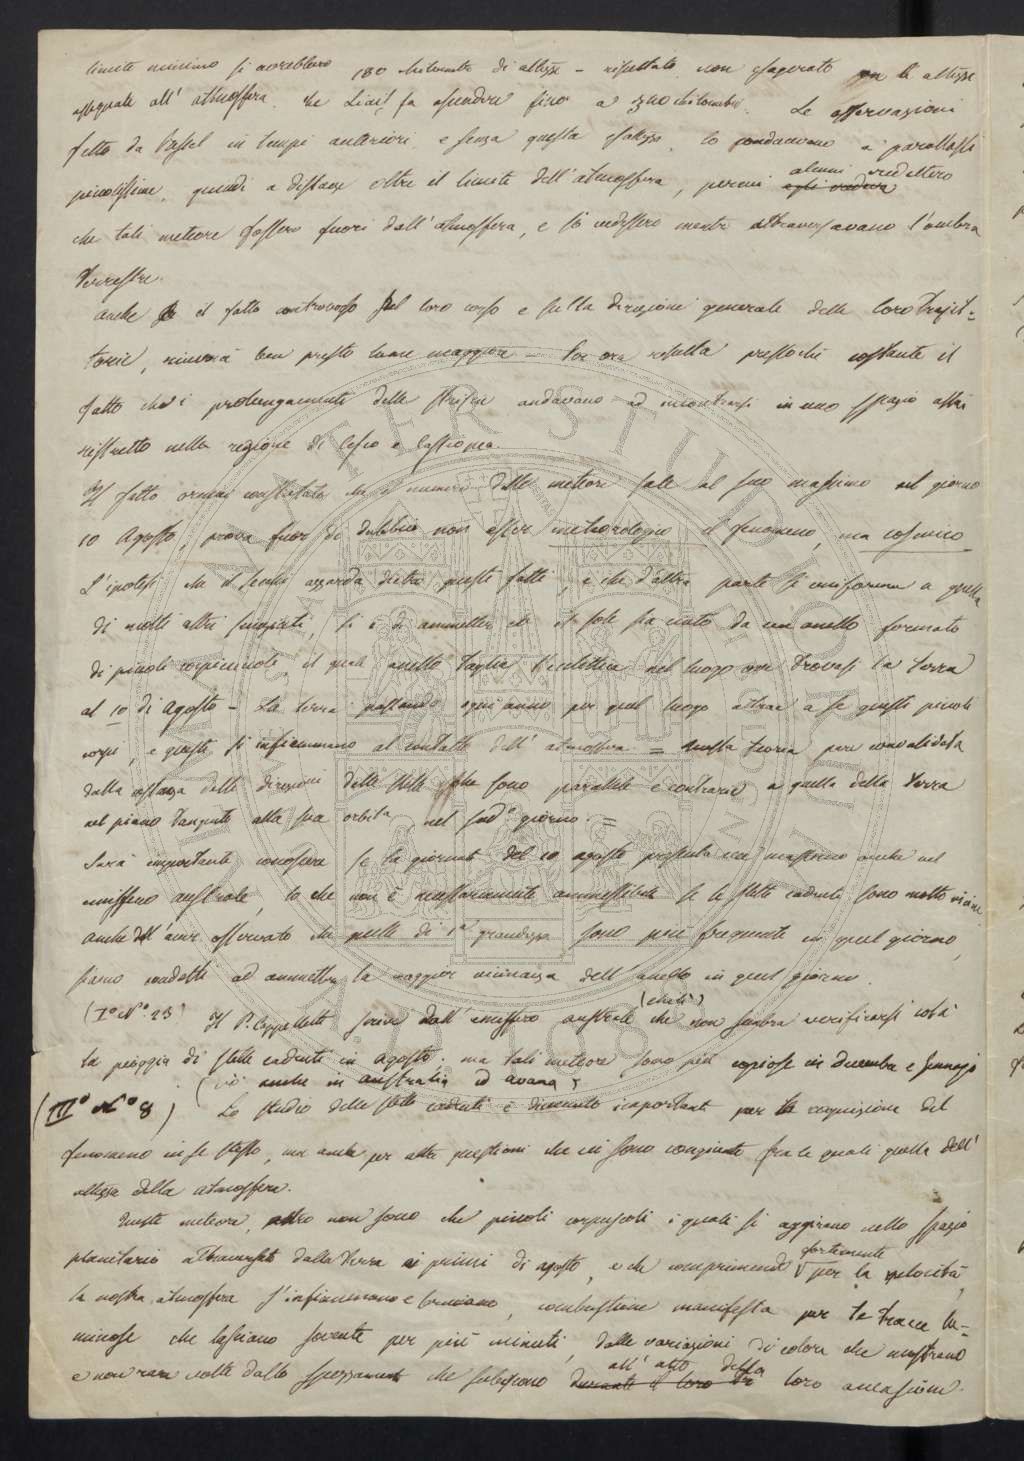 limite minimo si avrebbero 180 kilometri di altezza - risultato non esagerato per le altezze
assegnate all' atmosfera, che Liais fa ascendere fino a 340 kilometri. Le osservazioni
fatte da Bessel in tempi anteriori, e senza questa esattezza, lo conducevano a parallassi
piccolissime, quindi a distanze oltre il limite dell'atmosfera, perciò alcuni credettero egli credeva
che tali meteore fossero fuori dell'atmosfera, e si vedessero mentre attraversavano l'ombra
terrestre.
Anche il fatto controverso sul loro corso e sulla direzione generale delle loro trajet-
torie, riceverà ben presto lume maggiore - Per ora risulta pressoché costante il
fatto che i prolungamenti delle striscie andavano ad incontrarsi in uno spazio assai
ristretto nella regione di Cefeo e Cassiopea.
Il fatto ormai constatato che il numero delle meteore sale al suo massimo nel giorno
10 Agosto, prova fuor di dubbio non esser meteorologico il fenomeno, ma cosmico
L'ipotesi che il Secchi azzarda dietro questi fatti, e che d'altra parte si uniforma a quella
di molti altri scienziati, si è di ammettere che il sole sia cinto da un anello formato
di piccoli corpicciuoli, il quale anello taglia l'eclittica nel luogo ove trovasi la terra
al 10 di Agosto - La terra passando ogni anno per quel luogo attrae a se questi piccoli
corpi, e questi si infiammano al contatto dell' atmosfera = questa teoria pare convalidata
dalla costanza delle direzioni delle stelle che sono parallele e contrarie a quella della terra
nel piano tangente alla sua orbita, nel sud.o giorno =
Sarà importante conoscere se la giornata del 10 agosto presenta un massimo anche nel
emisfero australe, lo che non è necessariamente ammissibile se le stelle cadenti sono molto vicine
anche dall'aver osservato che quelle di 1a grandezza sono più frequenti in quel giorno,
siamo condotti ad ammettere la maggior vicinanza dell'anello in quel giorno.
(I.o N.o 23) Il P. Cappelletti scrive dall'emisfero australe (Chili) che non sembra verificarsi colà
la pioggia di stelle cadenti in agosto. ma tali meteore sono più copiose in Decembre e Gennajo
(ciò anche in australia ed avana)
(III.o N.o 8) Lo studio delle stelle cadenti è divenuto importante per la cognizione del
fenomeno in se stesso, ma anche per altre questioni che vi sono congiunte fra le quali quella dell'
altezza della atmosfera.
Queste meteore, altro non sono che piccoli corpuscoli i quali si aggirano nello spazio
planetario attraversato dalla terra ai primi di agosto, e che comprimendo fortemente per la velocità
la nostra atmosfera s'infiammano e bruciano, combustione manifesta per le tracce lu-
minose che lasciano sovente per più minuti, dalle variazioni di colore che mostrano
e non rare volte dallo spezzamento che subiscono durante il loro all' atto della loro accensione.